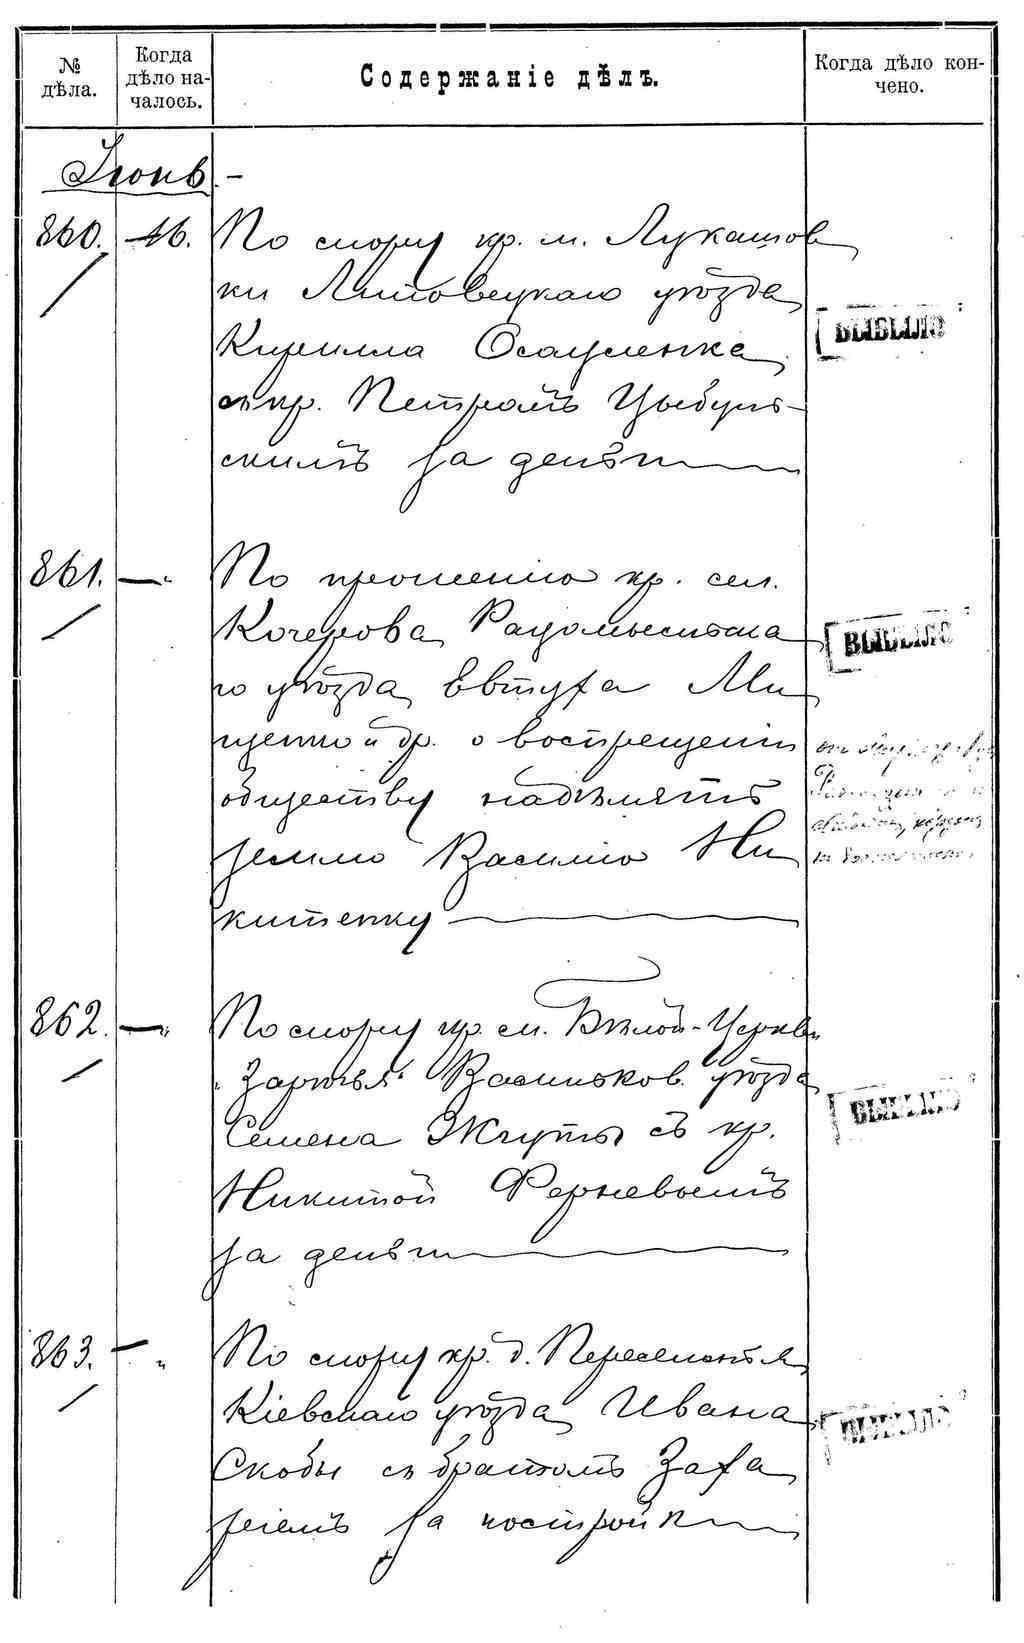 № дѣла.
Когда дѣло на-
чалось.
Содержаніе дѣлъ.
Когда дѣло кон-
чено.
Іюнь -
860. 16. По спору кр. м. Лукашов
ки Липовецкаго уѣзда
Кирилла Осауленка
съ кр. Петромъ Цыбуль-
скимъ за деньги
ВЫБЫЛО
861. — " По прошенію кр. сел.
Кочерова Радомысльска
го уѣзда Евтуха Ми
щенко и др. о воспрещеніи
обществу надѣлять
землю Василію Ни
китенку
ВЫБЫЛО
862. — " По спору кр. м. Бѣлой-Церкви
"Зарѣчья" Васильков. уѣзда
Семена Жгуты съ кр.
Никитой Ферневымъ
за деньги
ВЫБЫЛО
863. — " По спору кр. д. Переселенья
Кіевскаго уѣзда Ивана
Скобы съ братомъ Заха
ріемъ за постройки
ВЫБЫЛО